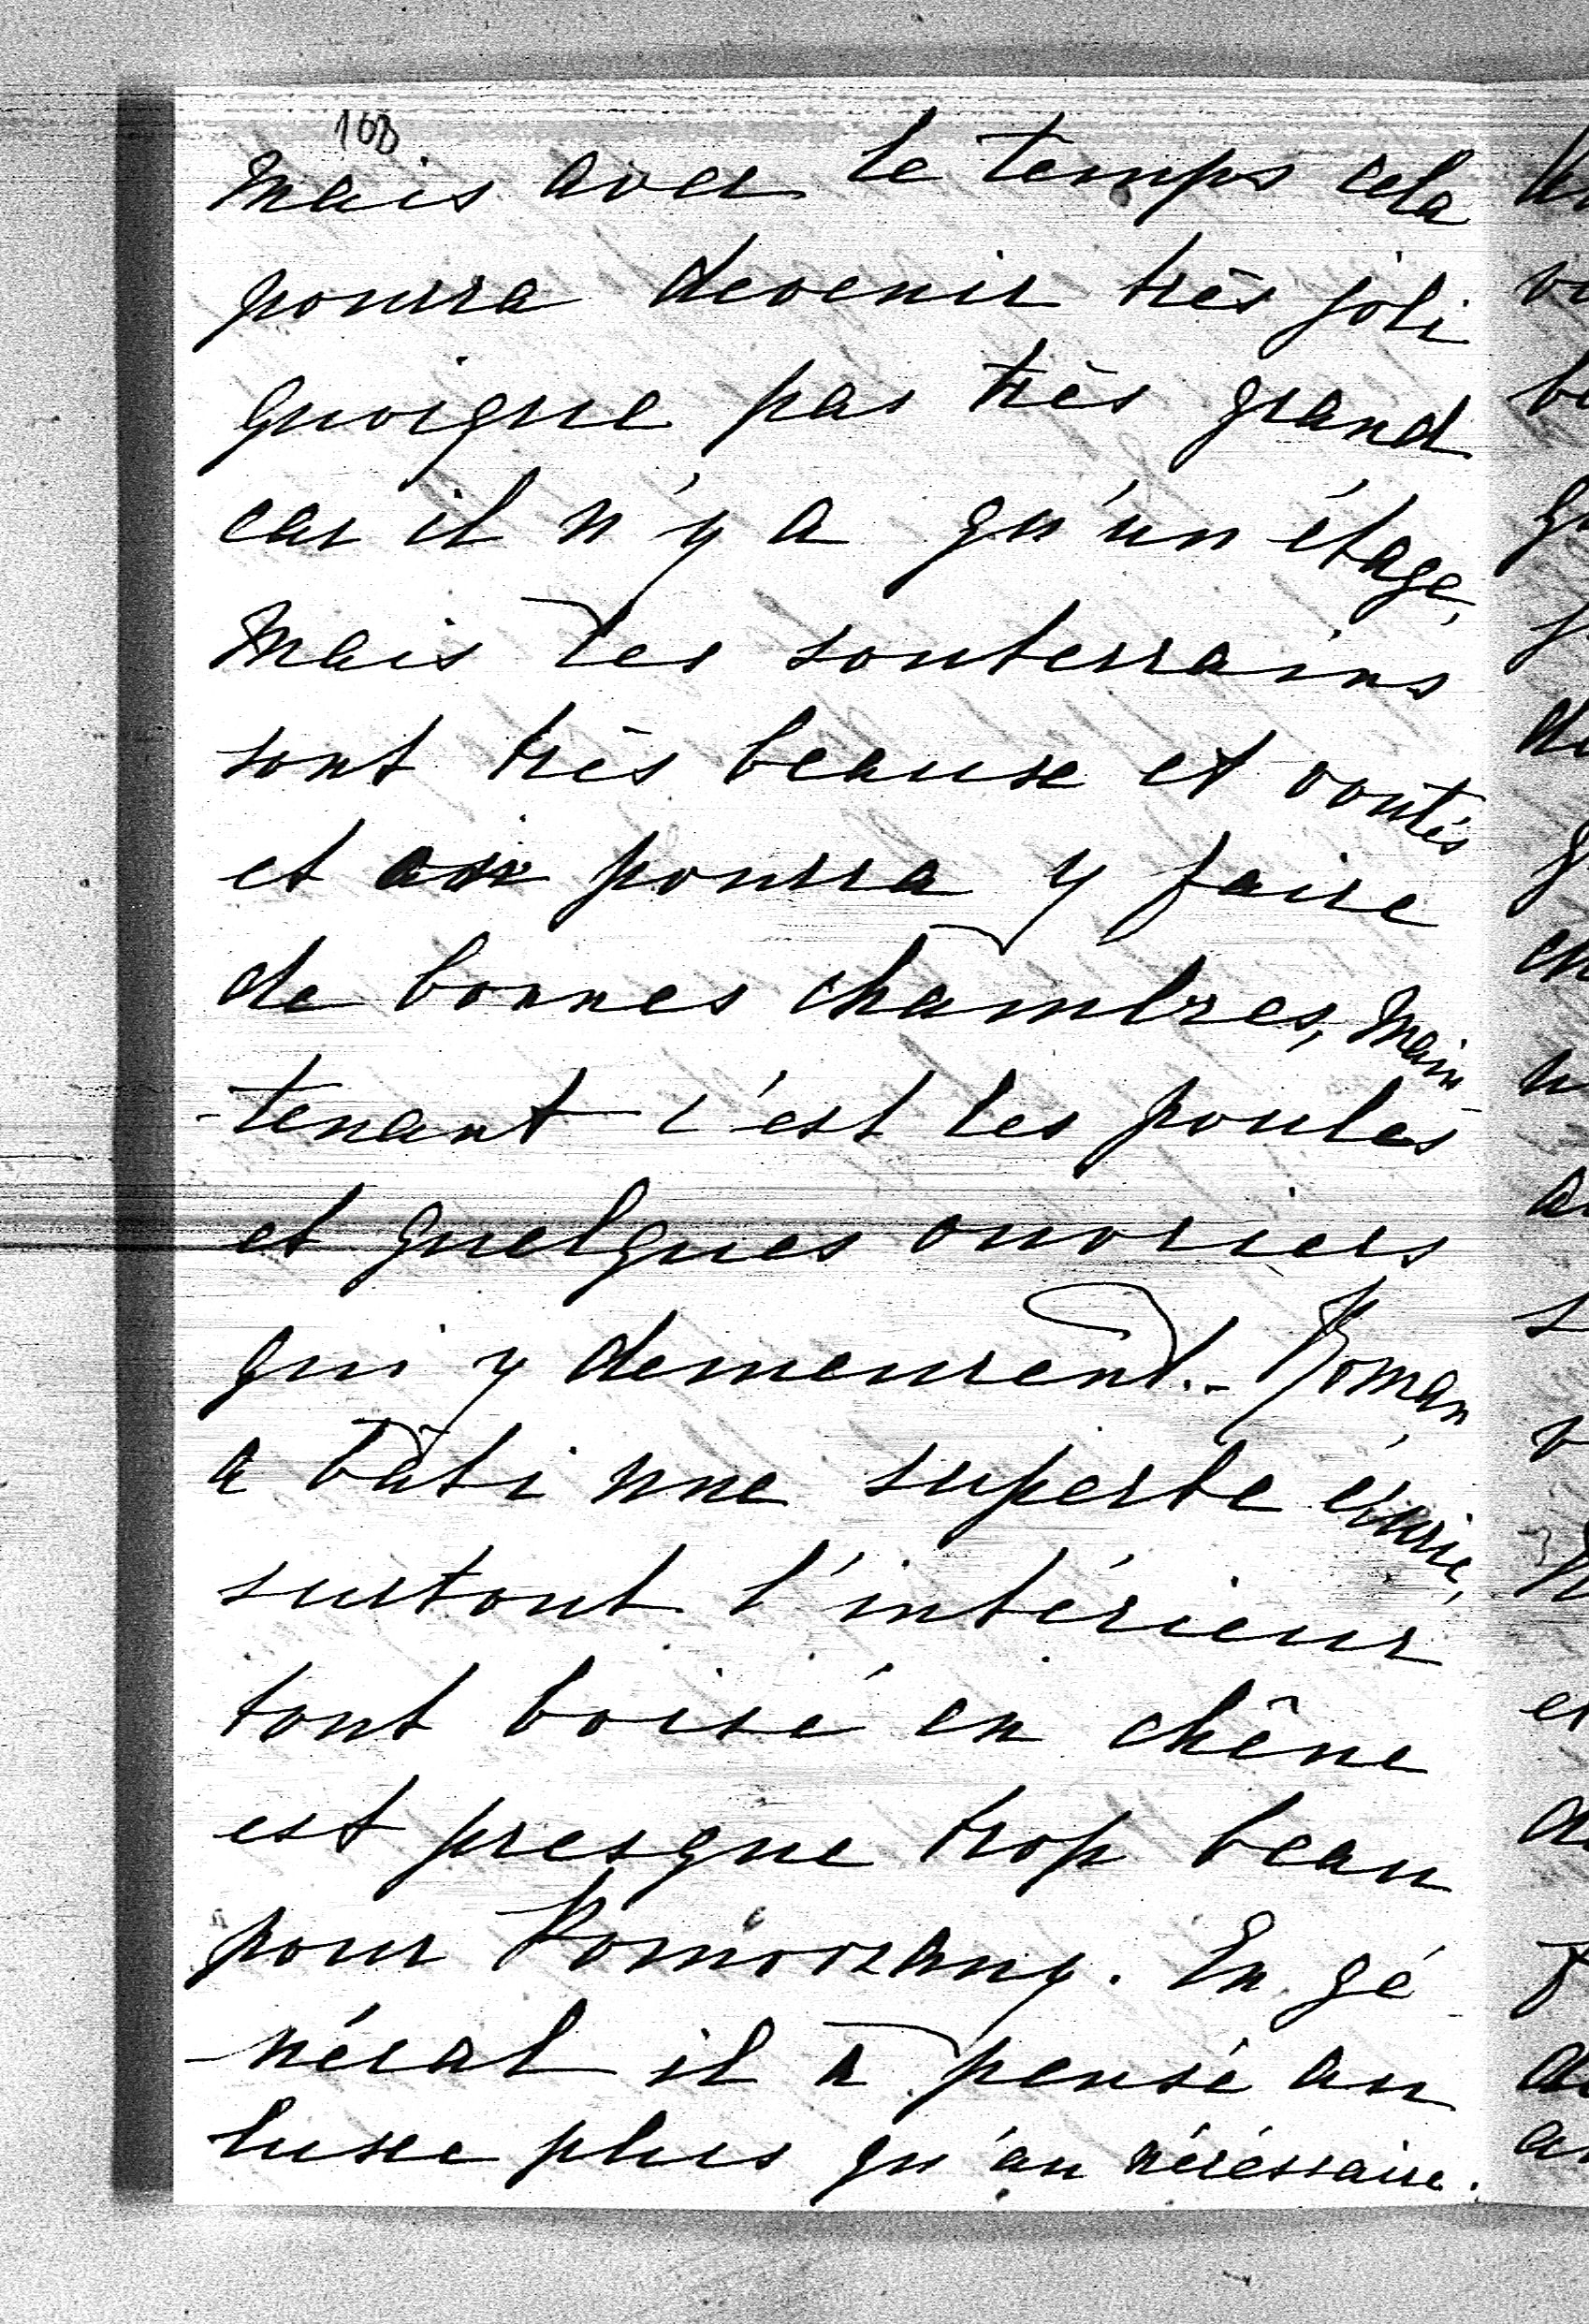 108
Mais avec le temps cela
pourra devenir très joli
quoique pas très grand
car il n'y a qu'un étage,
Mais les souterrains
sont très beaux et voutés
et on pourra y faire
de bonnes chambres, main
-tenant c'est les poules
et quelques ouvriers
qui y demeurent.- Roman
a bâti une superbe écurie,
surtout l'intérieur
tout boisé en chêne
est presque trop beau
pour Pomorzany. En gé
-néral il a pensé au
luxe plus qu'au nécéssaire.